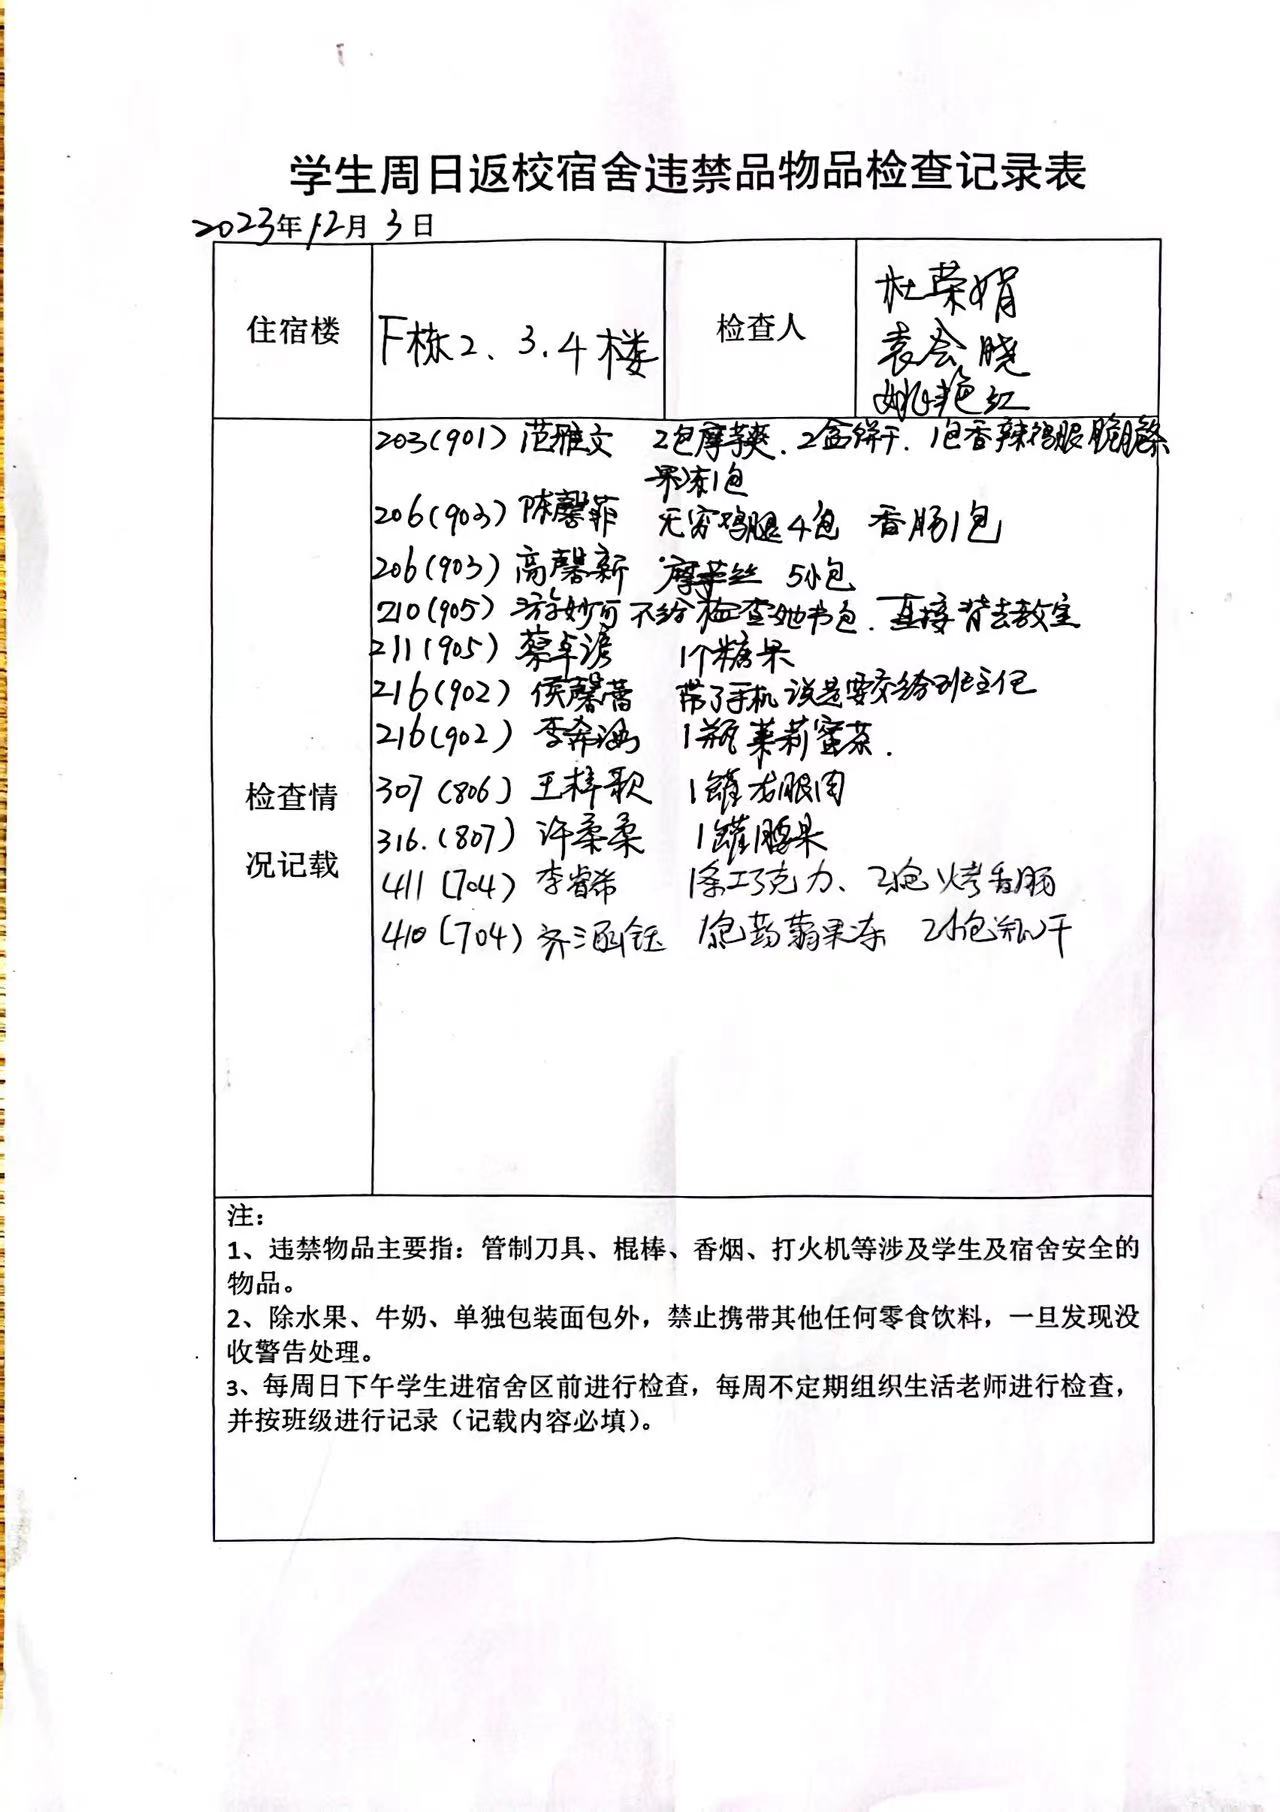 学生周日返校宿舍违禁品物品检查记录表
2023年12月3日
住宿楼
F栋2、3.4楼
检查人
杜荣娟
袁会晓
姚艳红
检查情
况记载
203(901) 范雅文 2包摩芋爽.2盒饼干.1包香辣鸡腿
果冻1包
206(903) 陈馨菲 无穷鸡腿4包 香肠1包
206(903) 高馨新 摩芋丝 5小包
210(905) 游妙可 不给检查她书包.直接背去教室
211(905) 蔡卓 1个糖果
216(902) 侯馨蕾 带了手机说是要交给班主任
216(902) 李希 1瓶茉莉蜜茶.
307(806) 王梓歌 1罐龙眼肉
316.(807) 许柔柔 1罐腰果
411(704) 李睿希 1条巧克力、2包烤香肠
410(704) 齐涵钰 1包蒟蒻果冻 2小包饼干
注：
1、违禁物品主要指：管制刀具、棍棒、香烟、打火机等涉及学生及宿舍安全的
物品。
2、除水果、牛奶、单独包装面包外，禁止携带其他任何零食饮料，一旦发现没
收警告处理。
3、每周日下午学生进宿舍区前进行检查，每周不定期组织生活老师进行检查，
并按班级进行记录（记载内容必填）。